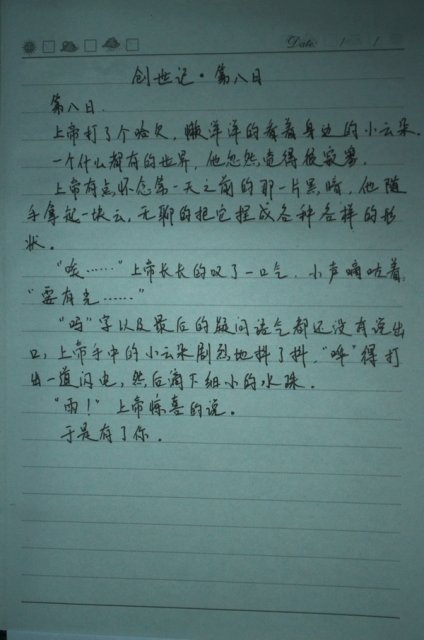 Date: / /
创世记·第八日
第八日.
上帝打了个哈欠，懒洋洋的看着身边的小云朵.
一个什么都有的世界，他忽然觉得很寂寞.
上帝有点怀念第一天之前的那一片黑暗，他随
手拿起一块云，无聊的把它捏成各种各样的形
状.
“唉……”上帝长长的叹了一口气，小声嘀咕着，
“要有光……”
“吗”字以及最后的疑问语气都还没有说出
口，上帝手中的小云朵剧烈地抖了抖，“哗”得打
出一道闪电，然后滴下细小的水珠.
“雨！”上帝惊喜的说.
于是有了你.